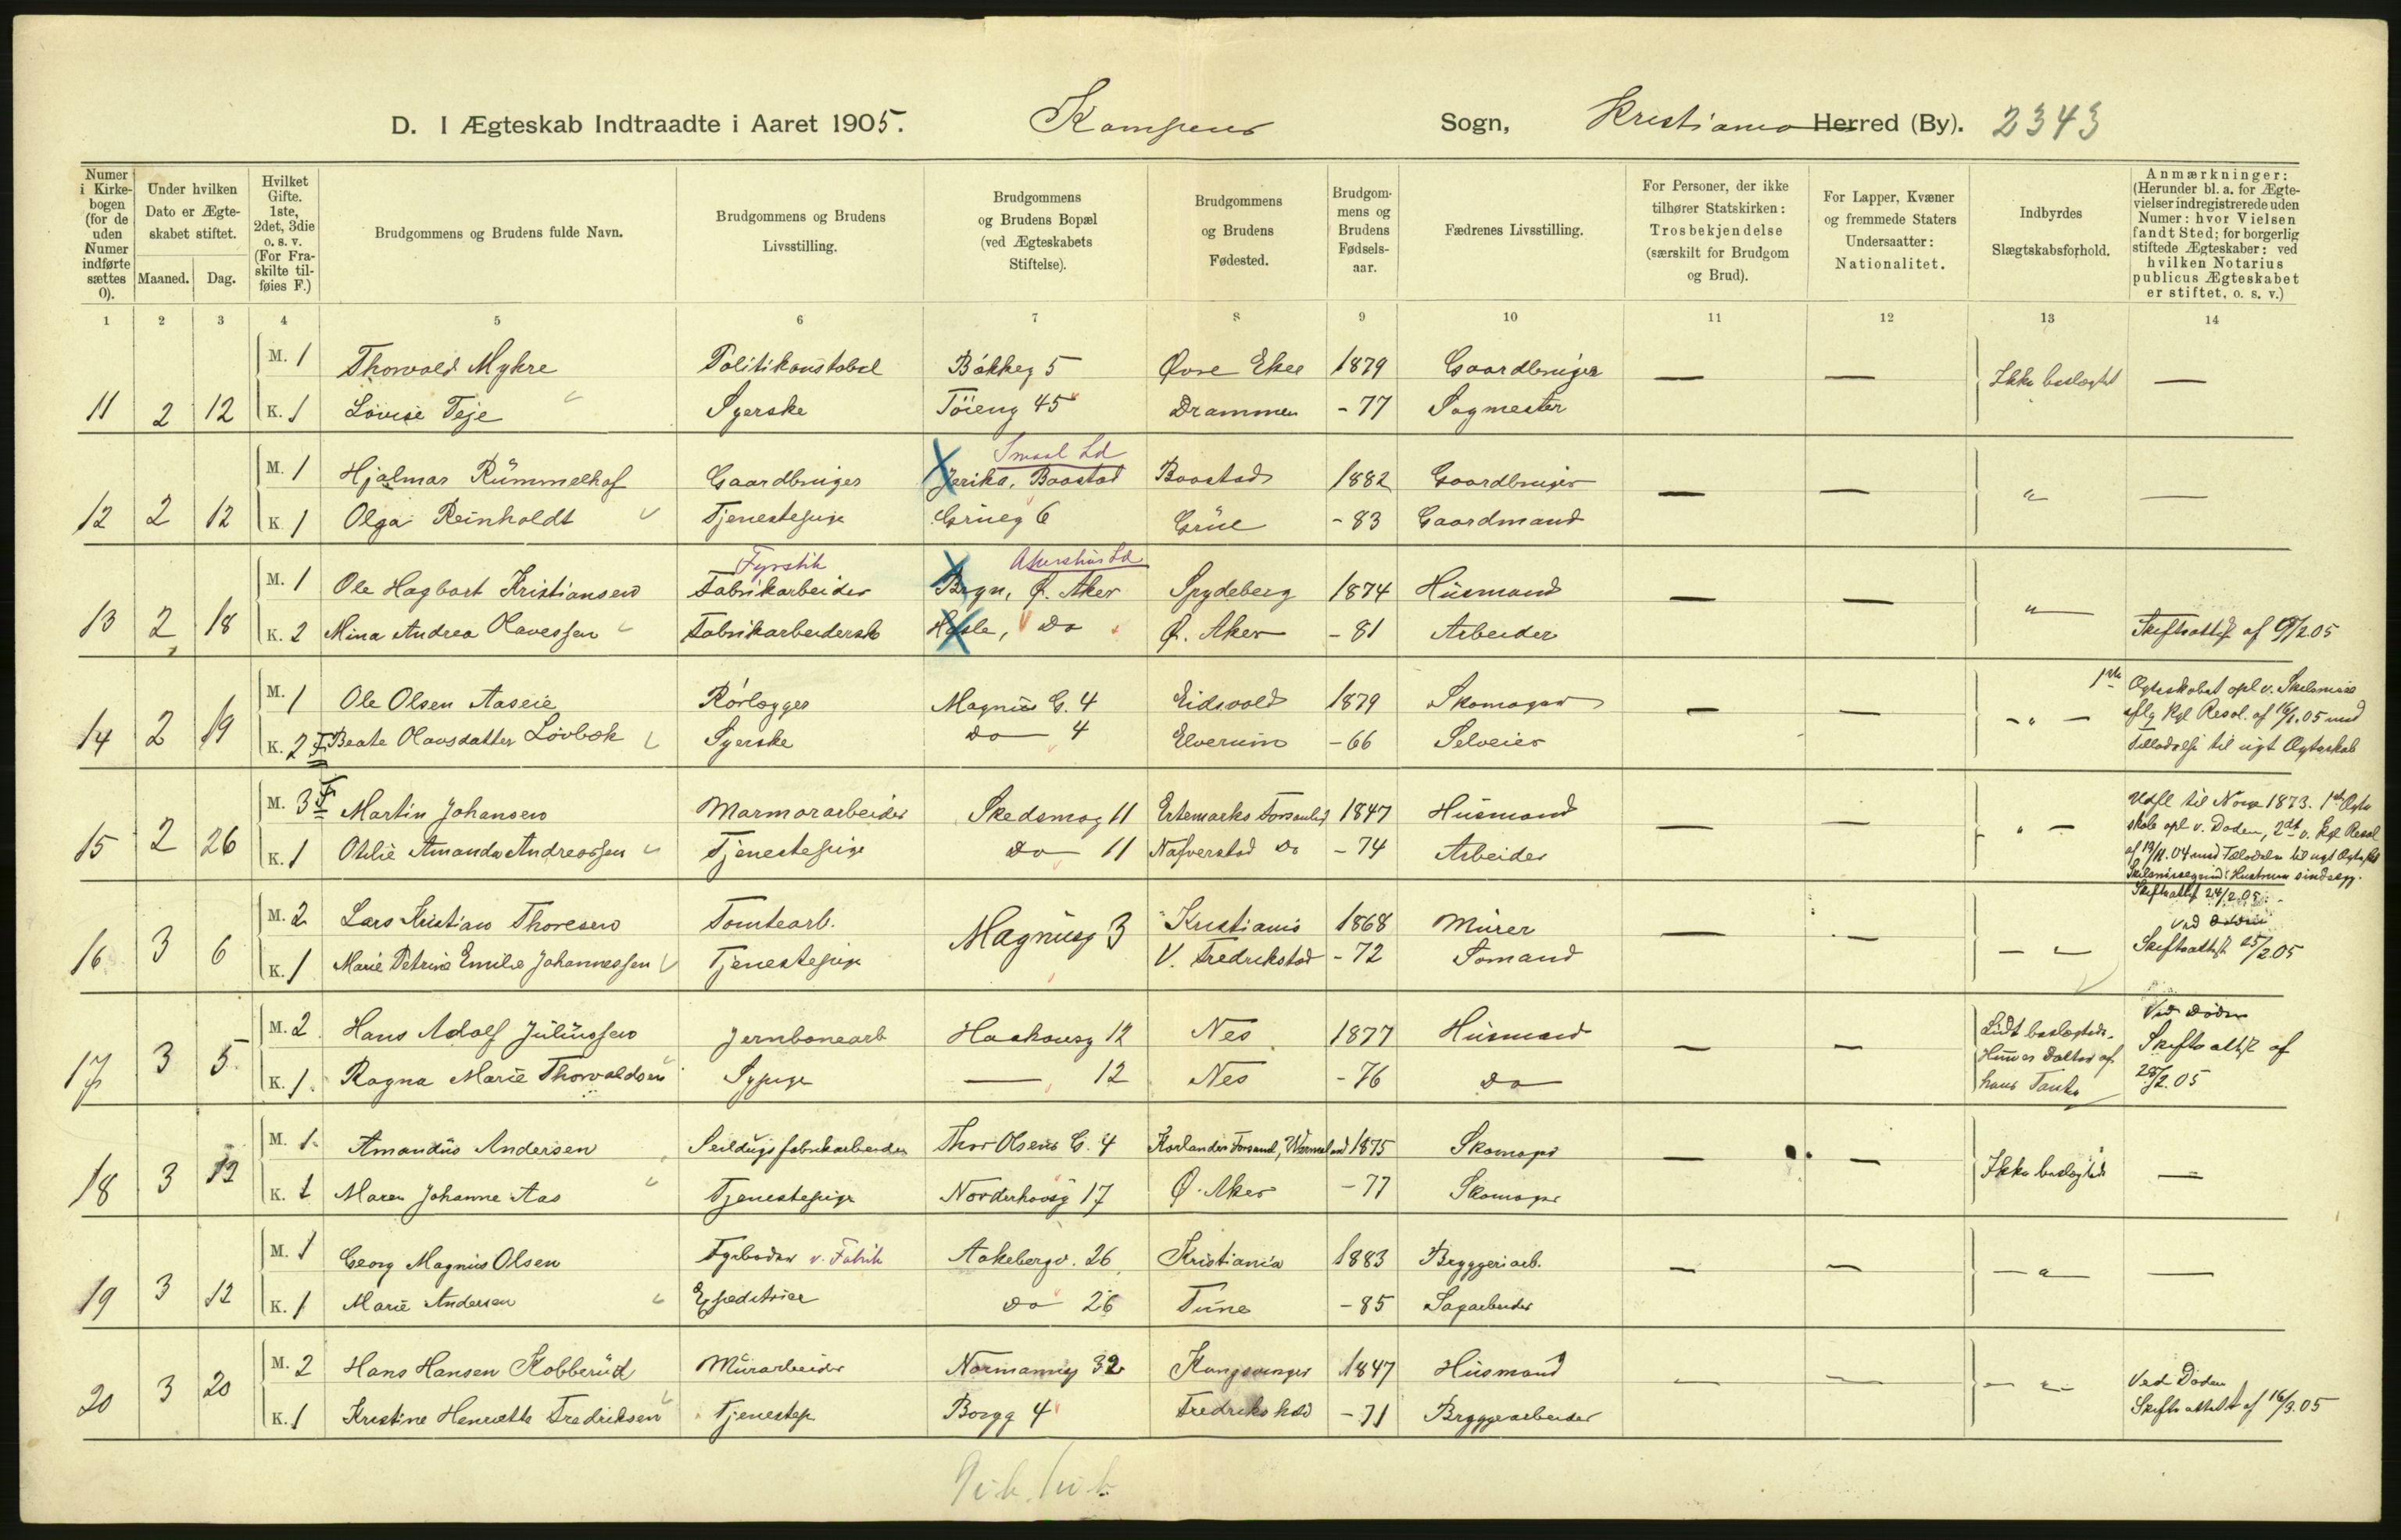 D. I Ægteskab Indtraadte i Aaret 1905. Kampens Sogn, Kristiania Herred (By). 2343
Numer i Kirkebogen (for de uden Numer indførte sættes 0).
Under hvilken Dato er Ægteskabet stiftet.
Maaned. Dag.
Hvilket Gifte. 1ste, 2det, 3die o. s. v. (For Fraskilte tilføies F.)
Brudgommens og Brudens fulde Navn.
Brudgommens og Brudens Livsstilling.
Brudgommens og Brudens Bopæl (ved Ægteskabets Stiftelse).
Brudgommens og Brudens Fødested.
Brudgommens og Brudens Fødselsaar.
Fædrenes Livsstilling.
For Personer, der ikke tilhører Statskirken: Trosbekjendelse (særskilt for Brudgom og Brud).
For Lapper, Kvæner og fremmede Staters Undersaatter: Nationalitet.
Indbyrdes Slægtskabsforhold.
Anmærkninger: (Herunder bl. a. for Ægtevielser indregistrerede uden Numer: hvor Vielsen fandt Sted; for borgerlig stiftede Ægteskaber: ved hvilken Notarius publicus Ægteskabet er stiftet, o. s. v.)
1 2 3 4 5 6 7 8 9 10 11 12 13 14
M. 1 Thorvald Myhre Politikonstabel Bökkeg 5 Øvre Eker 1879 Gaardbruger — — Ikke beslægtet —
11 2 12 K. 1 Lovise Teje Syerske Töieng 45 Drammen - 77 Sagmester
Smaal Ld
M. 1 Hjalmar Rümmelhof Gaardbruger Jerika, Baastad Baastad 1882 Gaardbruger — — " —
12 2 12 K. 1 Olga Reinholdt Tjenestepige Grüeg 6 Grüe - 83 Gaardmand
Fyrstik Akershus Ld
M. 1 Ole Hagbart Kristiansen Fabrikarbeider Bryn, Ø. Aker Spydeberg 1874 Husmand — — "
13 2 18 K. 2 Mina Andrea Olavessen Fabrikarbeiderske Hasle, Do Ø. Aker - 81 Arbeider Skifteattest af 9/2 05
M. 1 Ole Olsen Aaseie Rörlægger Magnus G. 4 Eidsvold 1879 Skomager — — - " - 1ste Ægteskabet opl v. Skilsmisse
iflg Kgl Resol. af 16/1.05 med
14 2 19 K. 2 F Beate Olavsdatter Lövbæk Syerske Do 4 Elverum - 66 Selveier Tilladelse til nyt Ægteskab
M. 3 F Martin Johansen Marmorarbeider Skedsmog 11 Ertemarks Forsamled 1847 Husmand — — " - Udfl til Norge 1873. 1ste Ægte
skab opl v. Döden, 2det v. Kgl Resol
15 2 26 K. 1 Otilie Amanda Andreassen Tjenestepige Do 11 Nafverstad Do - 74 Arbeider af 19/11.04 med Tilladelse til nyt Ægteskab
Skilsmissegrund: Hustruen sindssyg.
Skifteattest 24/2 05.
M. 2 Lars Kristian Thoresen Tomtearb. Magnusg 3 Kristiania 1868 Murer — — - " - Ved Döden
16 3 6 K. 1 Marie Petrine Emilie Johannessen Tjenestepige V. Fredrikstad - 72 Sömand Skifteattest 25/2 05
M. 2 Hans Adolf Juliussen Jernbanearb Haakonsg 12 Nes 1877 Husmand — — Lidt beslægtede. Ved Döden
Hun er Datter af Skifteattest af
17 3 5 K. 1 Ragna Marie Thorvaldsen Sypige — 12 Nes - 76 Do hans Tante 28/2.05
M. 1 Amandus Andersen Seildugsfabrikarbeider Thor Olsens G. 4 Karlanda Forsaml, Wärmeland 1875 Skomager — — Ikke beslægtet —
18 3 12 K. 1 Maren Johanne Aas Tjenestepige Norderhovsg 17 Ø. Aker - 77 Skomager
M. 1 Georg Magnus Olsen Fyrböder v. Fabrik Aakebergv. 26 Kristiania 1883 Bryggeriarb. — — — " — —
19 3 12 K. 1 Marie Andersen Expeditrice Do 26 Tune - 85 Sagarbeider
M. 2 Hans Hansen Kobberud Murarbeider Normannsg 32 Kongsvinger 1847 Husmand — — - " - Ved Döden
20 3 20 K. 1 Kristine Henriette Fredriksen Tjenestep Borgg 4 Fredrikshald - 71 Bryggearbeider Skifteattest af 16/3.05